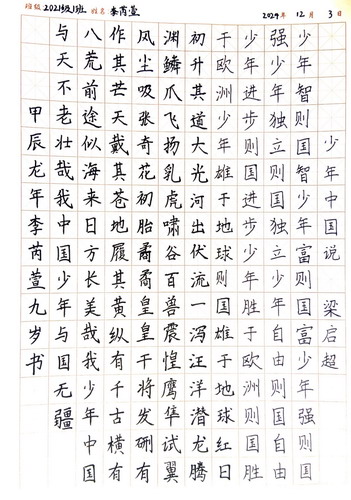 班级 2021级1班 姓名 李芮萱 2024年 12月 3日
少年中国说 梁启超
少年智则国智少年富则国富少年强则国
强少年独立则国独立少年自由则国自由
少年进步则国进步少年胜于欧洲则国胜
于欧洲少年雄于地球则国雄于地球红日
初升其道大光河出伏流一泻汪洋潜龙腾
渊鳞爪飞扬乳虎啸谷百兽震惶鹰隼试翼
风尘吸张奇花初胎矞矞皇皇干将发硎有
作其芒天戴其苍地履其黄纵有千古横有
八荒前途似海来日方长美哉我少年中国
与天不老壮哉我中国少年与国无疆
甲辰龙年李芮萱九岁书